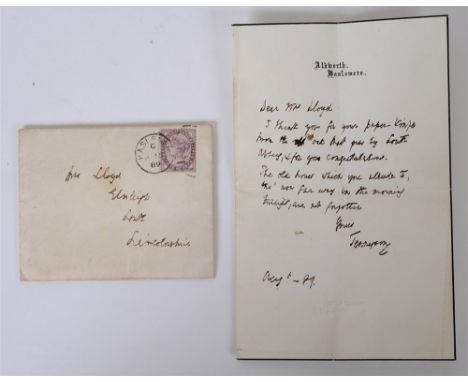 Aldworth,
Haslemere.
Dear Mrs Lloyd
I thank you for your paper-knife
from the oak that grew by Louth
Abbey, & for your congratulations.
The old hours which you allude to,
tho' now far away in the morning
twilight, are not forgotten
Yours
Tennyson
Augst - 89
HASLE
C
89
Mrs Lloyd
Elmleigh
Louth
Lincolnshire